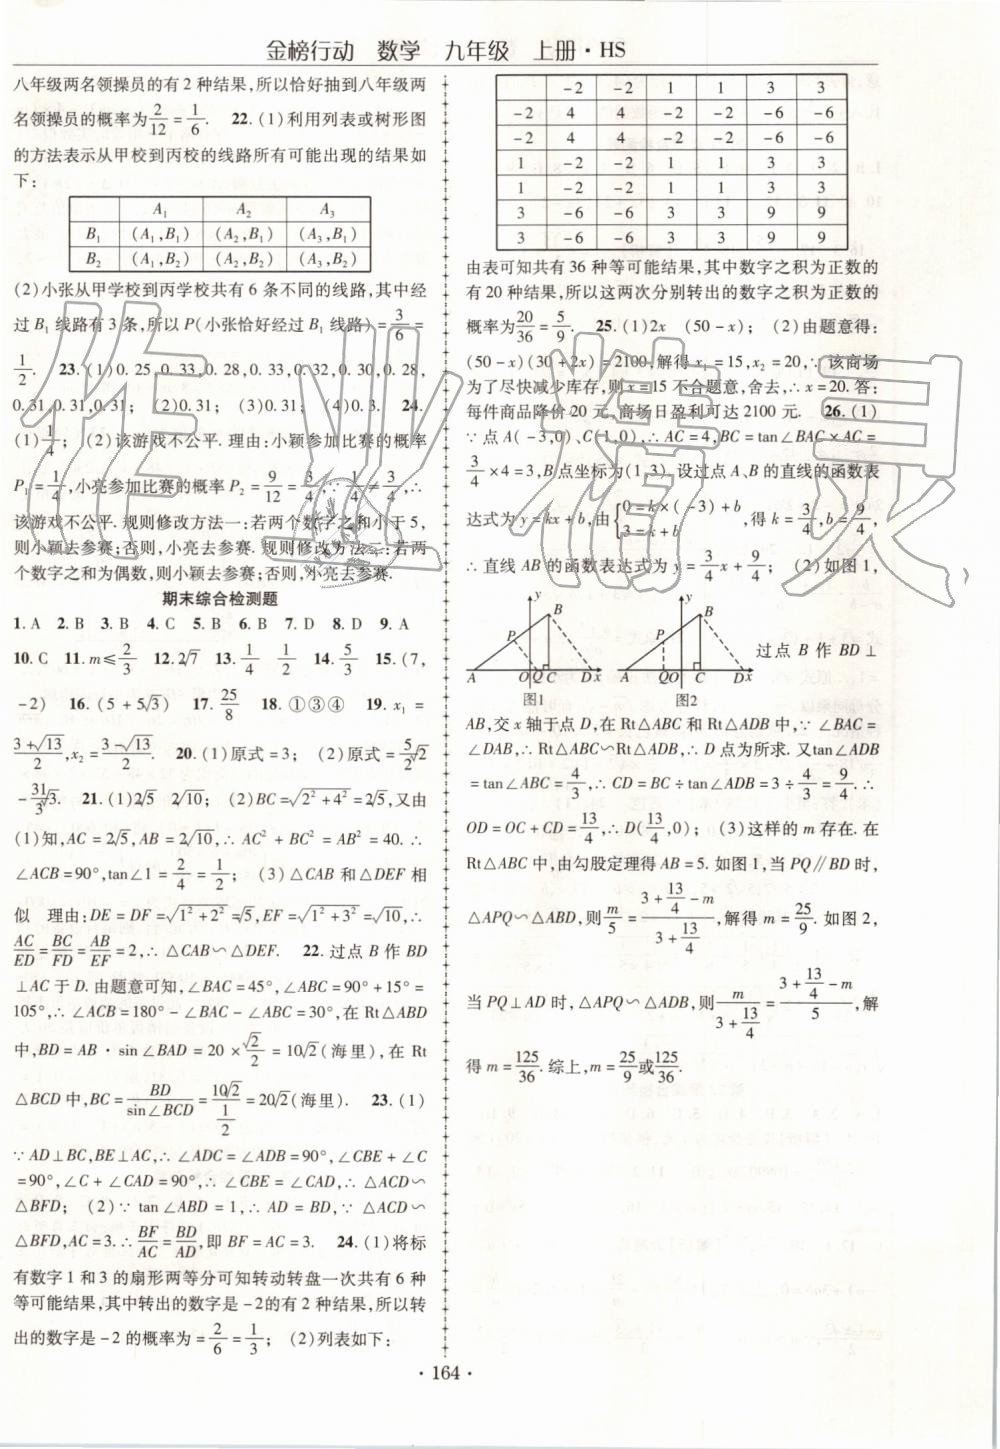 金榜行动 数学 九年级 上册·HS
八年级两名领操员的有 2 种结果,所以恰好抽到八年级两
名领操员的概率为 2/12 = 1/6. 22.(1)利用列表或树形图
的方法表示从甲校到丙校的线路所有可能出现的结果如
下:
A₁ A₂ A₃
B₁ (A₁,B₁) (A₂,B₁) (A₃,B₁)
B₂ (A₁,B₂) (A₂,B₂) (A₃,B₂)
(2)小张从甲学校到丙学校共有 6 条不同的线路,其中经
过 B₁ 线路有 3 条,所以 P(小张恰好经过 B₁ 线路) = 3/6 =
1/2. 23.(1)0.25,0.33,0.28,0.33,0.32,0.30,0.28,
0.31,0.31,0.31; (2)0.31; (3)0.31; (4)0.3. 24.
(1)1/4; (2)该游戏不公平. 理由:小颖参加比赛的概率
P₁ = 1/4,小亮参加比赛的概率 P₂ = 9/12 = 3/4,∵ 1/4 ≠ 3/4,∴
该游戏不公平. 规则修改方法一:若两个数字之和小于 5,
则小颖去参赛;否则,小亮去参赛. 规则修改方法二:若两
个数字之和为偶数,则小颖去参赛;否则,小亮去参赛.
期末综合检测题
1. A 2. B 3. B 4. C 5. B 6. B 7. D 8. D 9. A
10. C 11. m≤2/3 12. 2√7 13. 1/4 1/2 14. 5/3 15. (7,
-2) 16. (5 + 5√3) 17. 25/8 18. ①③④ 19. x₁ =
(3+√13)/2, x₂ = (3-√13)/2. 20.(1)原式 = 3; (2)原式 = 5/2√2
- 31/3√3. 21.(1)2√5 2√10; (2)BC = √(2²+4²) = 2√5,又由
(1)知,AC = 2√5,AB = 2√10,∴ AC² + BC² = AB² = 40. ∴
∠ACB = 90°,tan∠1 = 2/4 = 1/2; (3)△CAB 和△DEF 相
似 理由:DE = DF = √(1²+2²) = √5,EF = √(1²+3²) = √10,∴
AC/ED = BC/FD = AB/EF = 2,∴ △CAB∽△DEF. 22. 过点 B 作 BD
⊥AC 于 D. 由题意可知,∠BAC = 45°,∠ABC = 90° + 15° =
105°,∴ ∠ACB = 180° - ∠BAC - ∠ABC = 30°,在 Rt△ABD
中,BD = AB · sin∠BAD = 20 × √2/2 = 10√2(海里),在 Rt
△BCD 中,BC = BD/sin∠BCD = 10√2/(1/2) = 20√2(海里). 23.(1)
∵ AD⊥BC,BE⊥AC,∴ ∠ADC = ∠ADB = 90°,∠CBE + ∠C
= 90°,∠C + ∠CAD = 90°,∴ ∠CBE = ∠CAD,∴ △ACD∽
△BFD; (2)∵ tan∠ABD = 1,∴ AD = BD,∵ △ACD∽
△BFD,AC = 3. ∴ BF/AC = BD/AD,即 BF = AC = 3. 24.(1)将标
有数字 1 和 3 的扇形两等分可知转动转盘一次共有 6 种
等可能结果,其中转出的数字是 -2的有 2 种结果,所以转
出的数字是 -2 的概率为 = 2/6 = 1/3; (2)列表如下:
-2 -2 1 1 3 3
-2 4 4 -2 -2 -6 -6
-2 4 4 -2 -2 -6 -6
1 -2 -2 1 1 3 3
1 -2 -2 1 1 3 3
3 -6 -6 3 3 9 9
3 -6 -6 3 3 9 9
由表可知共有 36 种等可能结果,其中数字之积为正数的
有 20 种结果,所以这两次分别转出的数字之积为正数的
概率为 20/36 = 5/9. 25.(1)2x (50 - x); (2)由题意得:
(50 - x)(30 + 2x) = 2100,解得 x₁ = 15,x₂ = 20,∵ 该商场
为了尽快减少库存,则 x = 15 不合题意,舍去,∴ x = 20. 答:
每件商品降价 20 元,商场日盈利可达 2100 元. 26.(1)
∵ 点 A( -3,0)、C(1,0),∴ AC = 4,BC = tan∠BAC × AC =
3/4 × 4 = 3,B 点坐标为(1,3),设过点 A、B 的直线的函数表
达式为 y = kx + b,由{0 = k × ( -3) + b
3 = k + b ,得 k = 3/4,b = 9/4,
∴ 直线 AB 的函数表达式为 y = 3/4 x + 9/4; (2)如图 1,
y B P A O Q C D x 图1
y B P A Q O C D x 图2
过点 B 作 BD⊥
AB,交 x 轴于点 D,在 Rt△ABC 和 Rt△ADB 中,∵ ∠BAC =
∠DAB,∴ Rt△ABC∽Rt△ADB,∴ D 点为所求. 又tan∠ADB
= tan∠ABC = 4/3,∴ CD = BC ÷ tan∠ADB = 3 ÷ 4/3 = 9/4. ∴
OD = OC + CD = 13/4,∴ D(13/4,0); (3)这样的 m 存在. 在
Rt△ABC 中,由勾股定理得 AB = 5. 如图 1,当 PQ∥BD 时,
△APQ∽△ABD,则 m/5 = (3 + 13/4 - m)/(3 + 13/4),解得 m = 25/9. 如图 2,
当 PQ⊥AD 时,△APQ∽△ADB,则 m/(3 + 13/4) = (3 + 13/4 - m)/5,解
得 m = 125/36. 综上,m = 25/9 或 125/36.
· 164 ·
作业精灵